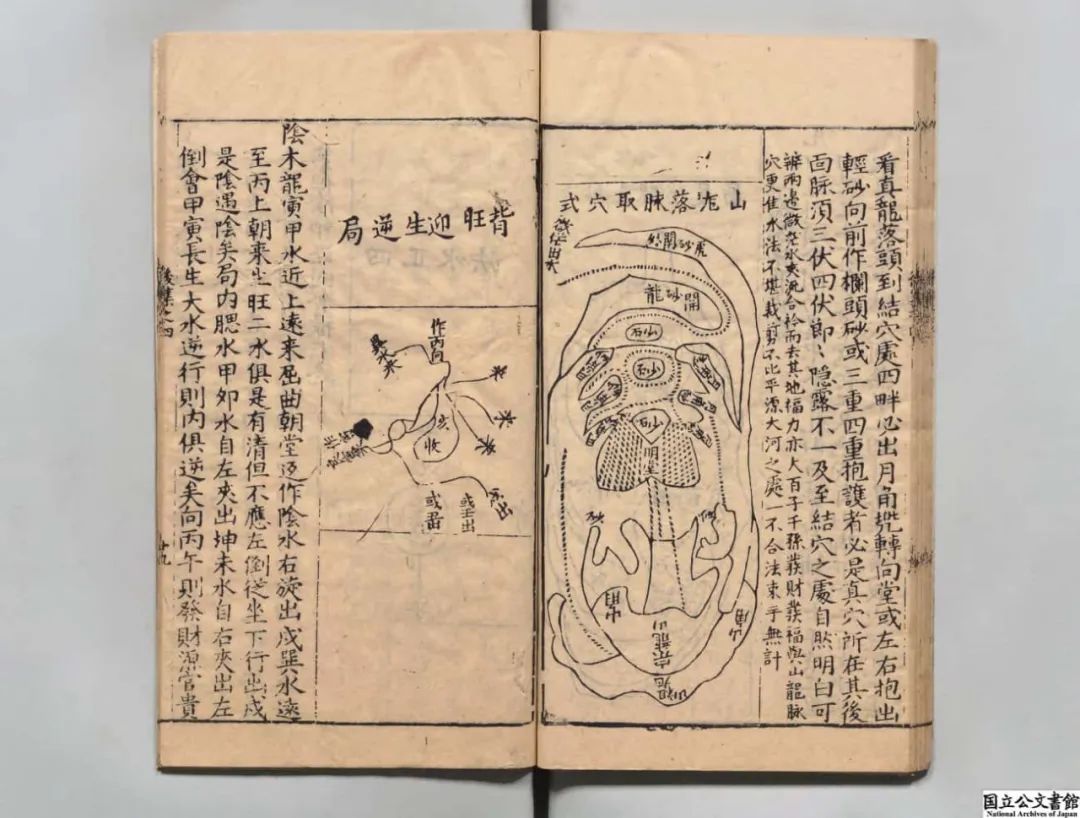 看真龍落頭到結穴處四畔必出月角兠轉向堂或左右抱出
輕砂向前作欄頭砂或三重四重抱護者必是真穴所在其後
面脉湏三伏四伏節〻隐露不一及至結穴之處自然明白可
辨兩邊微茫水夾流合衿而去其地福力亦大百子千孫發財發福與山龍脉
穴更佳水法不堪裁剪不比平源大河之處一不合法束手無計
山龙落脉取穴式
開砂龍
山石
砂石
砂石
明堂
砂
砂
宗龍山
山祖
背旺迎生逆局
作丙向
來
來
來
收
或出
陰木龍寅甲水近上遠來屈曲朝堂迳作陰水右旋出戌巽水遠
至丙上朝來生旺二水俱是有清但不應左倒從坐下行出戌
是陰遇陰矣局内腮水甲夘水自左夾出坤未水自右夾出左
倒會甲寅長生大水逆行則内俱逆矣向丙午則發財源官貴
廿九
国立公文書館
National Archives of Japan